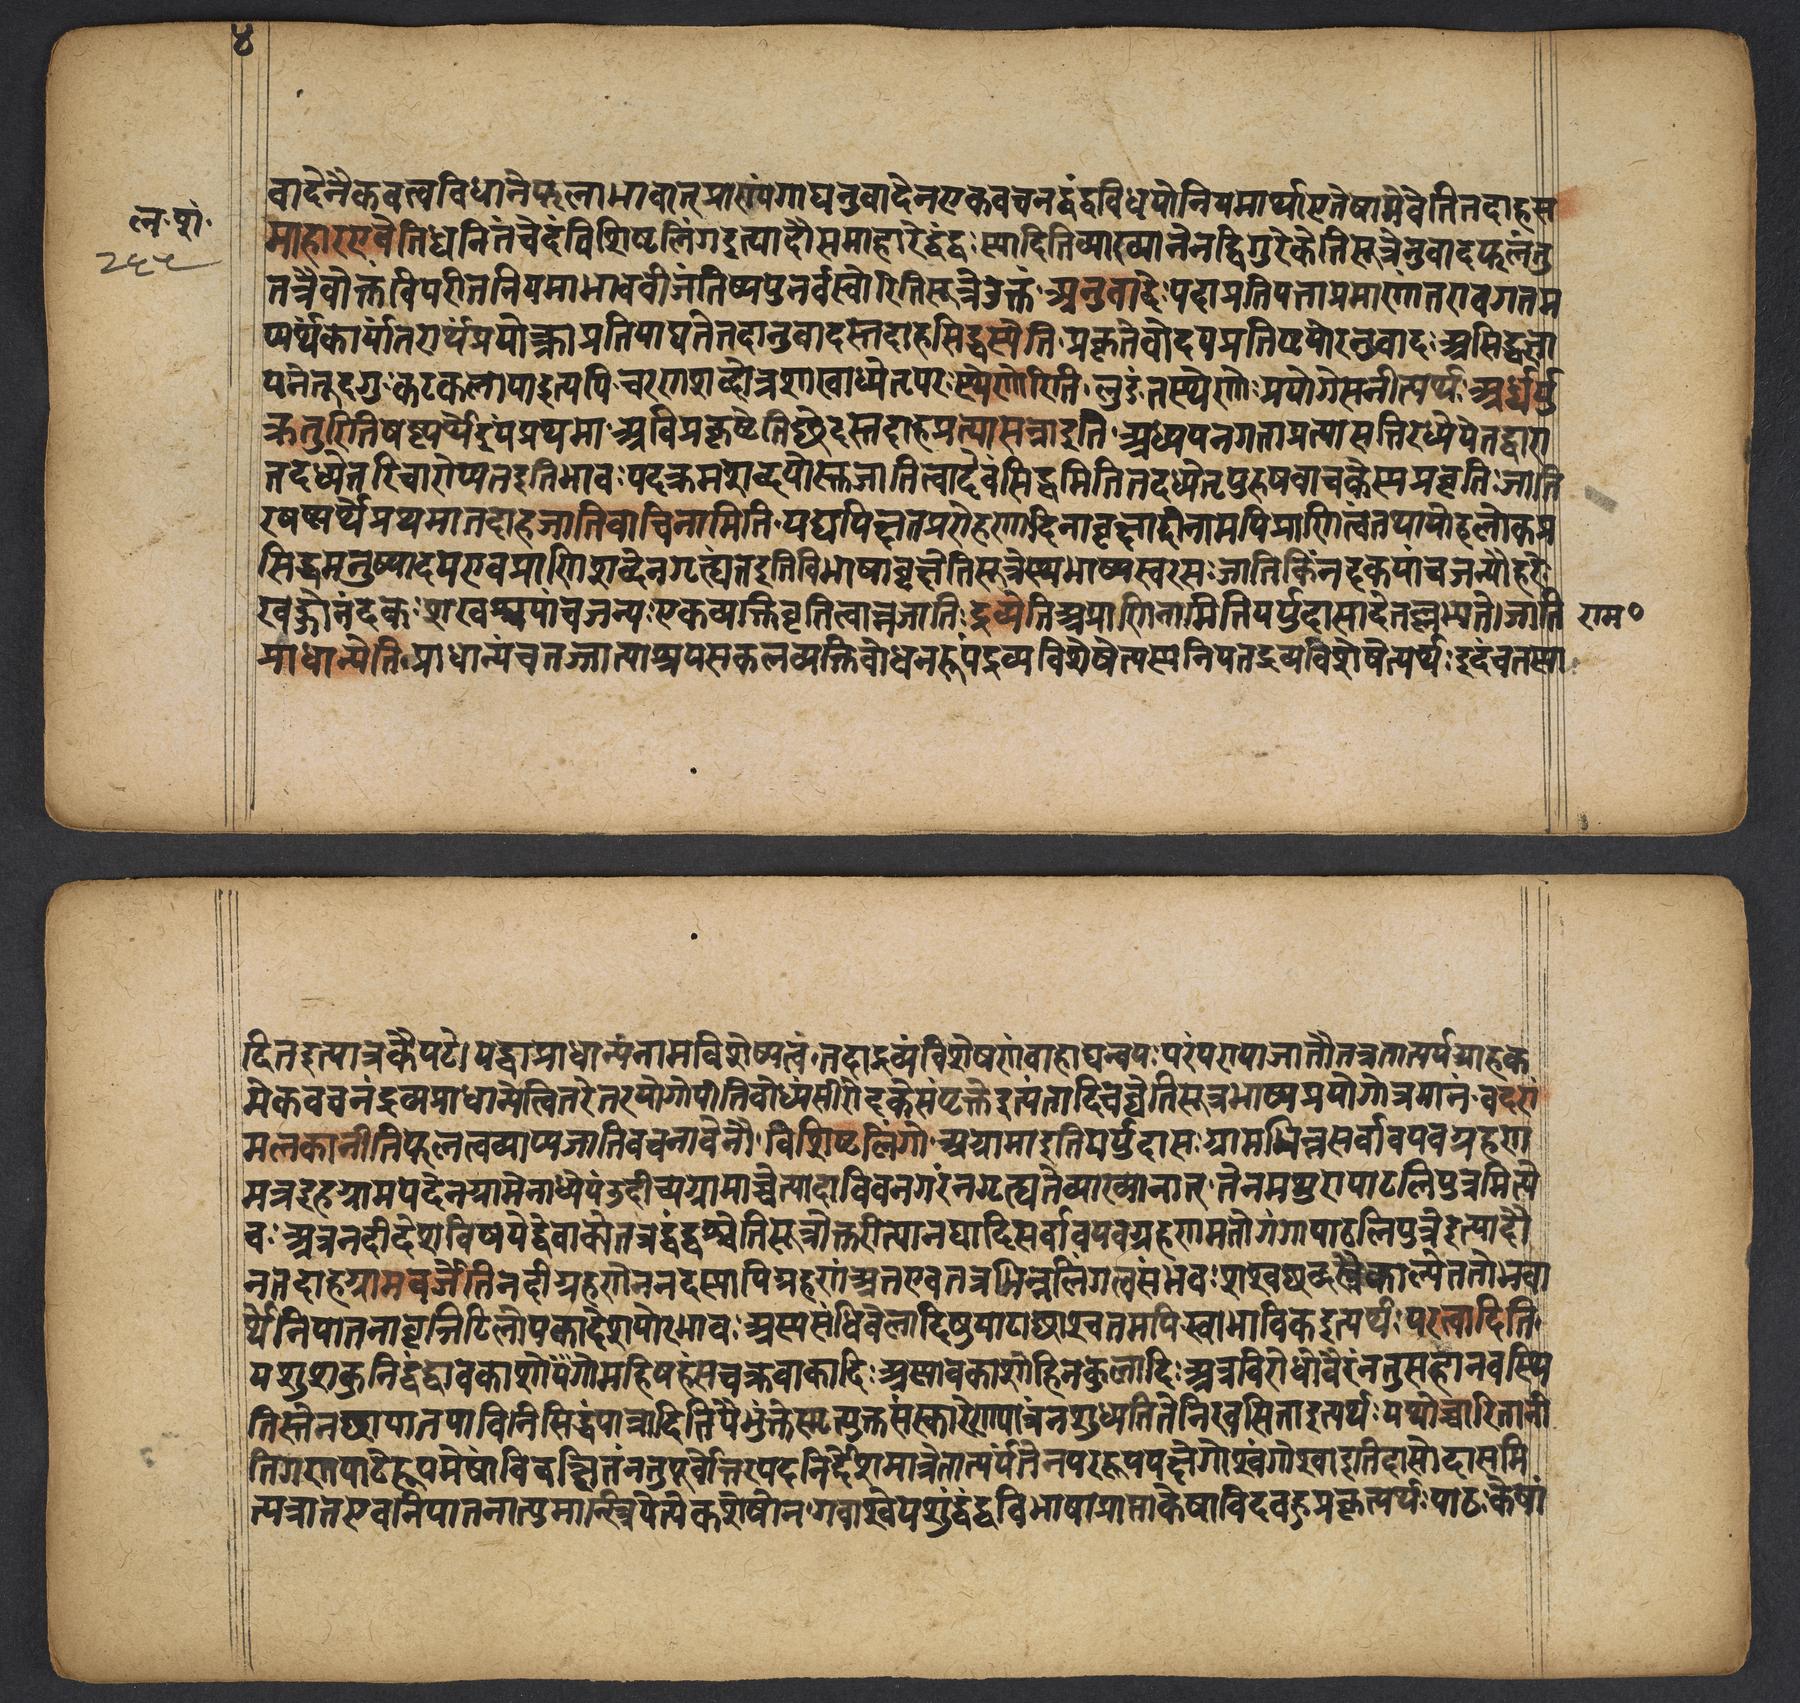 ४
ल॰ शं॰
२९५
वादेनैकवत्वविधाने फलाभावात् प्रासंगाद्यनुवादेन एकवचनद्वंद्वविधयो नियमार्थ्या एतेषामेवेति तदाह स
माहारएवेति ध्वनितं चेदं विशिष्टलिंगइत्यादौ समाहारेद्वंद्वः स्यादिति व्याख्यानेन द्विगुरेकेति सूत्रेनुवादफलंतु
तत्रैवोक्तं विपरीतनियमाभाववीजंतिष्यपुनर्वस्वोरितिसूत्रेउक्तं अनुवादे पदाप्रतिपत्ताप्रमाणांतरावगतम
प्यर्थंकार्यांतरार्थंप्रयोक्त्राप्रतिपाद्यतेतदानुवादस्तदाहसिद्धस्येति प्रकृतेवोदयप्रतिष्टयोरनुवादः असिद्धता
पनेतूदगुः कठकलापाइत्यपि चरणशब्दोत्रशाखाध्येतृपरः स्थेणोरिति लुङंतस्थेणोः प्रयोगेसतीत्यर्थः अर्ध्वर्यु
क्रतुरितिषष्ठ्यर्थेइयंप्रथमा अविप्रकृष्टेतिछेदस्तदाहप्रत्यासन्नाइति अध्ययनगताप्रत्यासत्तिरध्येयेतद्वारा
तदध्येतरिचारोप्यतइतिभावः पदक्रमशब्दयोस्तजातित्वादेवंसिद्धमितितदध्येतृपुरुषवाचकेस्यप्रवृतिः जाति
रषष्ठ्यर्थेप्रथमातदाहजातिवाचिनामिति यद्यपिक्षतप्ररोहणादिनावृक्षादीनामपिप्राणित्वंतथापीहलोकप्र
सिद्धमनुष्यादयएवप्राणिशब्देनगृत्ह्यंतइतिविभाषावृक्षेतिसूत्रेस्यभाष्यस्वरसः जातिकिंनंदकपांचजन्यौहरेः
खड्गोनंदकः शंखश्चपांचजन्यः एकव्यक्तिवृतित्वान्नजातिः द्रव्येतिअप्राणिनामितिपर्युदासादेतल्लभ्यते। जाति राम॰
प्राधान्येति प्राधान्यंचतज्जात्याश्रयसकलव्यक्तिवोधनरूपंद्रव्यविशेषेत्यस्यनियतद्रव्यविशेषेत्यर्थः इदंचतस्या
दितइत्यात्रकैयटे। यद्वाप्राधान्यंनामविशेष्यत्वं तदाद्रव्यंविशेषणंवाहाद्यन्वयः परंपरयाजातौतत्रतात्पर्यग्राहक
मेकवचनंद्रव्यप्राधान्येत्वितरेतरयोगोपीतिवोध्यंसीरोदकेसंपृक्तेइत्यंतादिवच्चेतिसूत्रभाष्यप्रयोगोत्रमानं वदरा
मलकानीतिफलत्वव्याप्यजातिवचनावेतौ विशिष्टलिंगो अग्रामाइतिपर्युदासः ग्रामभिन्नसर्वावयवग्रहणा
मत्रइहग्रामपदेनग्रामेनाध्येयंउदीच्यग्रामाच्चेत्यादाविवनगरंनगृत्ह्यतेव्याख्यानात् तेनमथुरापाटलिपुत्रमित्ये
व अत्रनदीदेशविषयेद्वेवाक्येतत्रद्वंद्वश्चेतिसूत्रोक्तरीत्यानद्यादिसर्वावयवग्रहणमतोगंगापाटलिपुत्रेइत्यादौ
नतदाहग्रामवर्जेतिनदीग्रहणेननदस्यापिग्रहणंअतएवतत्रभिन्नलिंगत्वसंभवः शश्वछब्दस्त्रैकाल्येततोभवा
र्थेनिपातनावृनिटिलोपकादेशयोरभावः अस्यसंधिवेलादिषुपाठाछाश्वतमपिस्वाभाविकइत्यर्थः परत्वादिति
पशुशकुनिद्वंद्वावकाशोपंगोमहिषहंसचक्रवाकादि अस्यावकाशोहिनकुलादि अत्रविरोधोवैरंनतुसहानवस्थि
तिस्तेनछायातपाविनिसिद्धंपात्रादितिपैर्भुक्तेस्मृत्युक्तसंस्कारेणपात्रंनशुध्यतितेनिरवसिताइत्यर्थः यथोच्चारितानी
तिगणपाठेरूपमेषांविवक्षितंनतुपूर्वोत्तरपदनिर्देशमात्रेतात्पर्यंतेनपररूपपक्षेगोश्वंगोश्वाइतिदासोदासमि
त्यत्रातएवनिपातनात्पुमान्स्त्रियेत्येकशेषोन गवाश्वेपशुद्वंद्वविभाषाप्राप्ताकेषाविदवङ्प्रकृत्यर्थः पाठः केषां